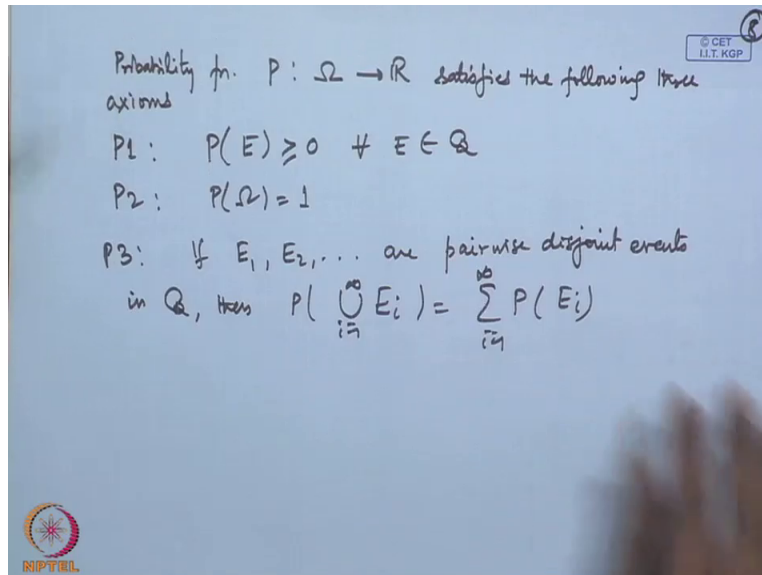 8
© CET
I.I.T. KGP
Probability fn. P : Ω → R satisfies the following three
axioms
P1 : P(E) ≥ 0 ∀ E ∈ Q
P2 : P(Ω) = 1
P3 : If E₁, E₂, ... are pairwise disjoint events
in Q, then P( ∞∪i=1 Eᵢ ) = ∞∑i=1 P(Eᵢ)
NPTEL